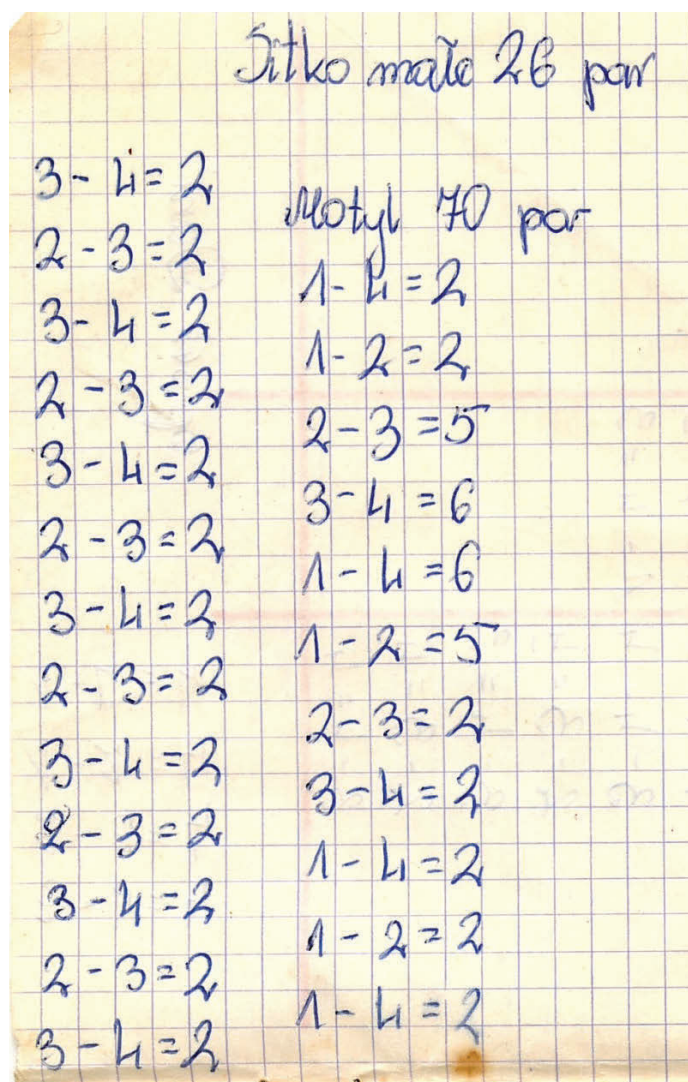 Sitko małe 26 par
3 - 4 = 2
2 - 3 = 2
3 - 4 = 2
2 - 3 = 2
3 - 4 = 2
2 - 3 = 2
3 - 4 = 2
2 - 3 = 2
3 - 4 = 2
2 - 3 = 2
3 - 4 = 2
2 - 3 = 2
3 - 4 = 2
Motyl 70 par
1 - 4 = 2
1 - 2 = 2
2 - 3 = 5
3 - 4 = 6
1 - 4 = 6
1 - 2 = 5
2 - 3 = 2
3 - 4 = 2
1 - 4 = 2
1 - 2 = 2
1 - 4 = 2